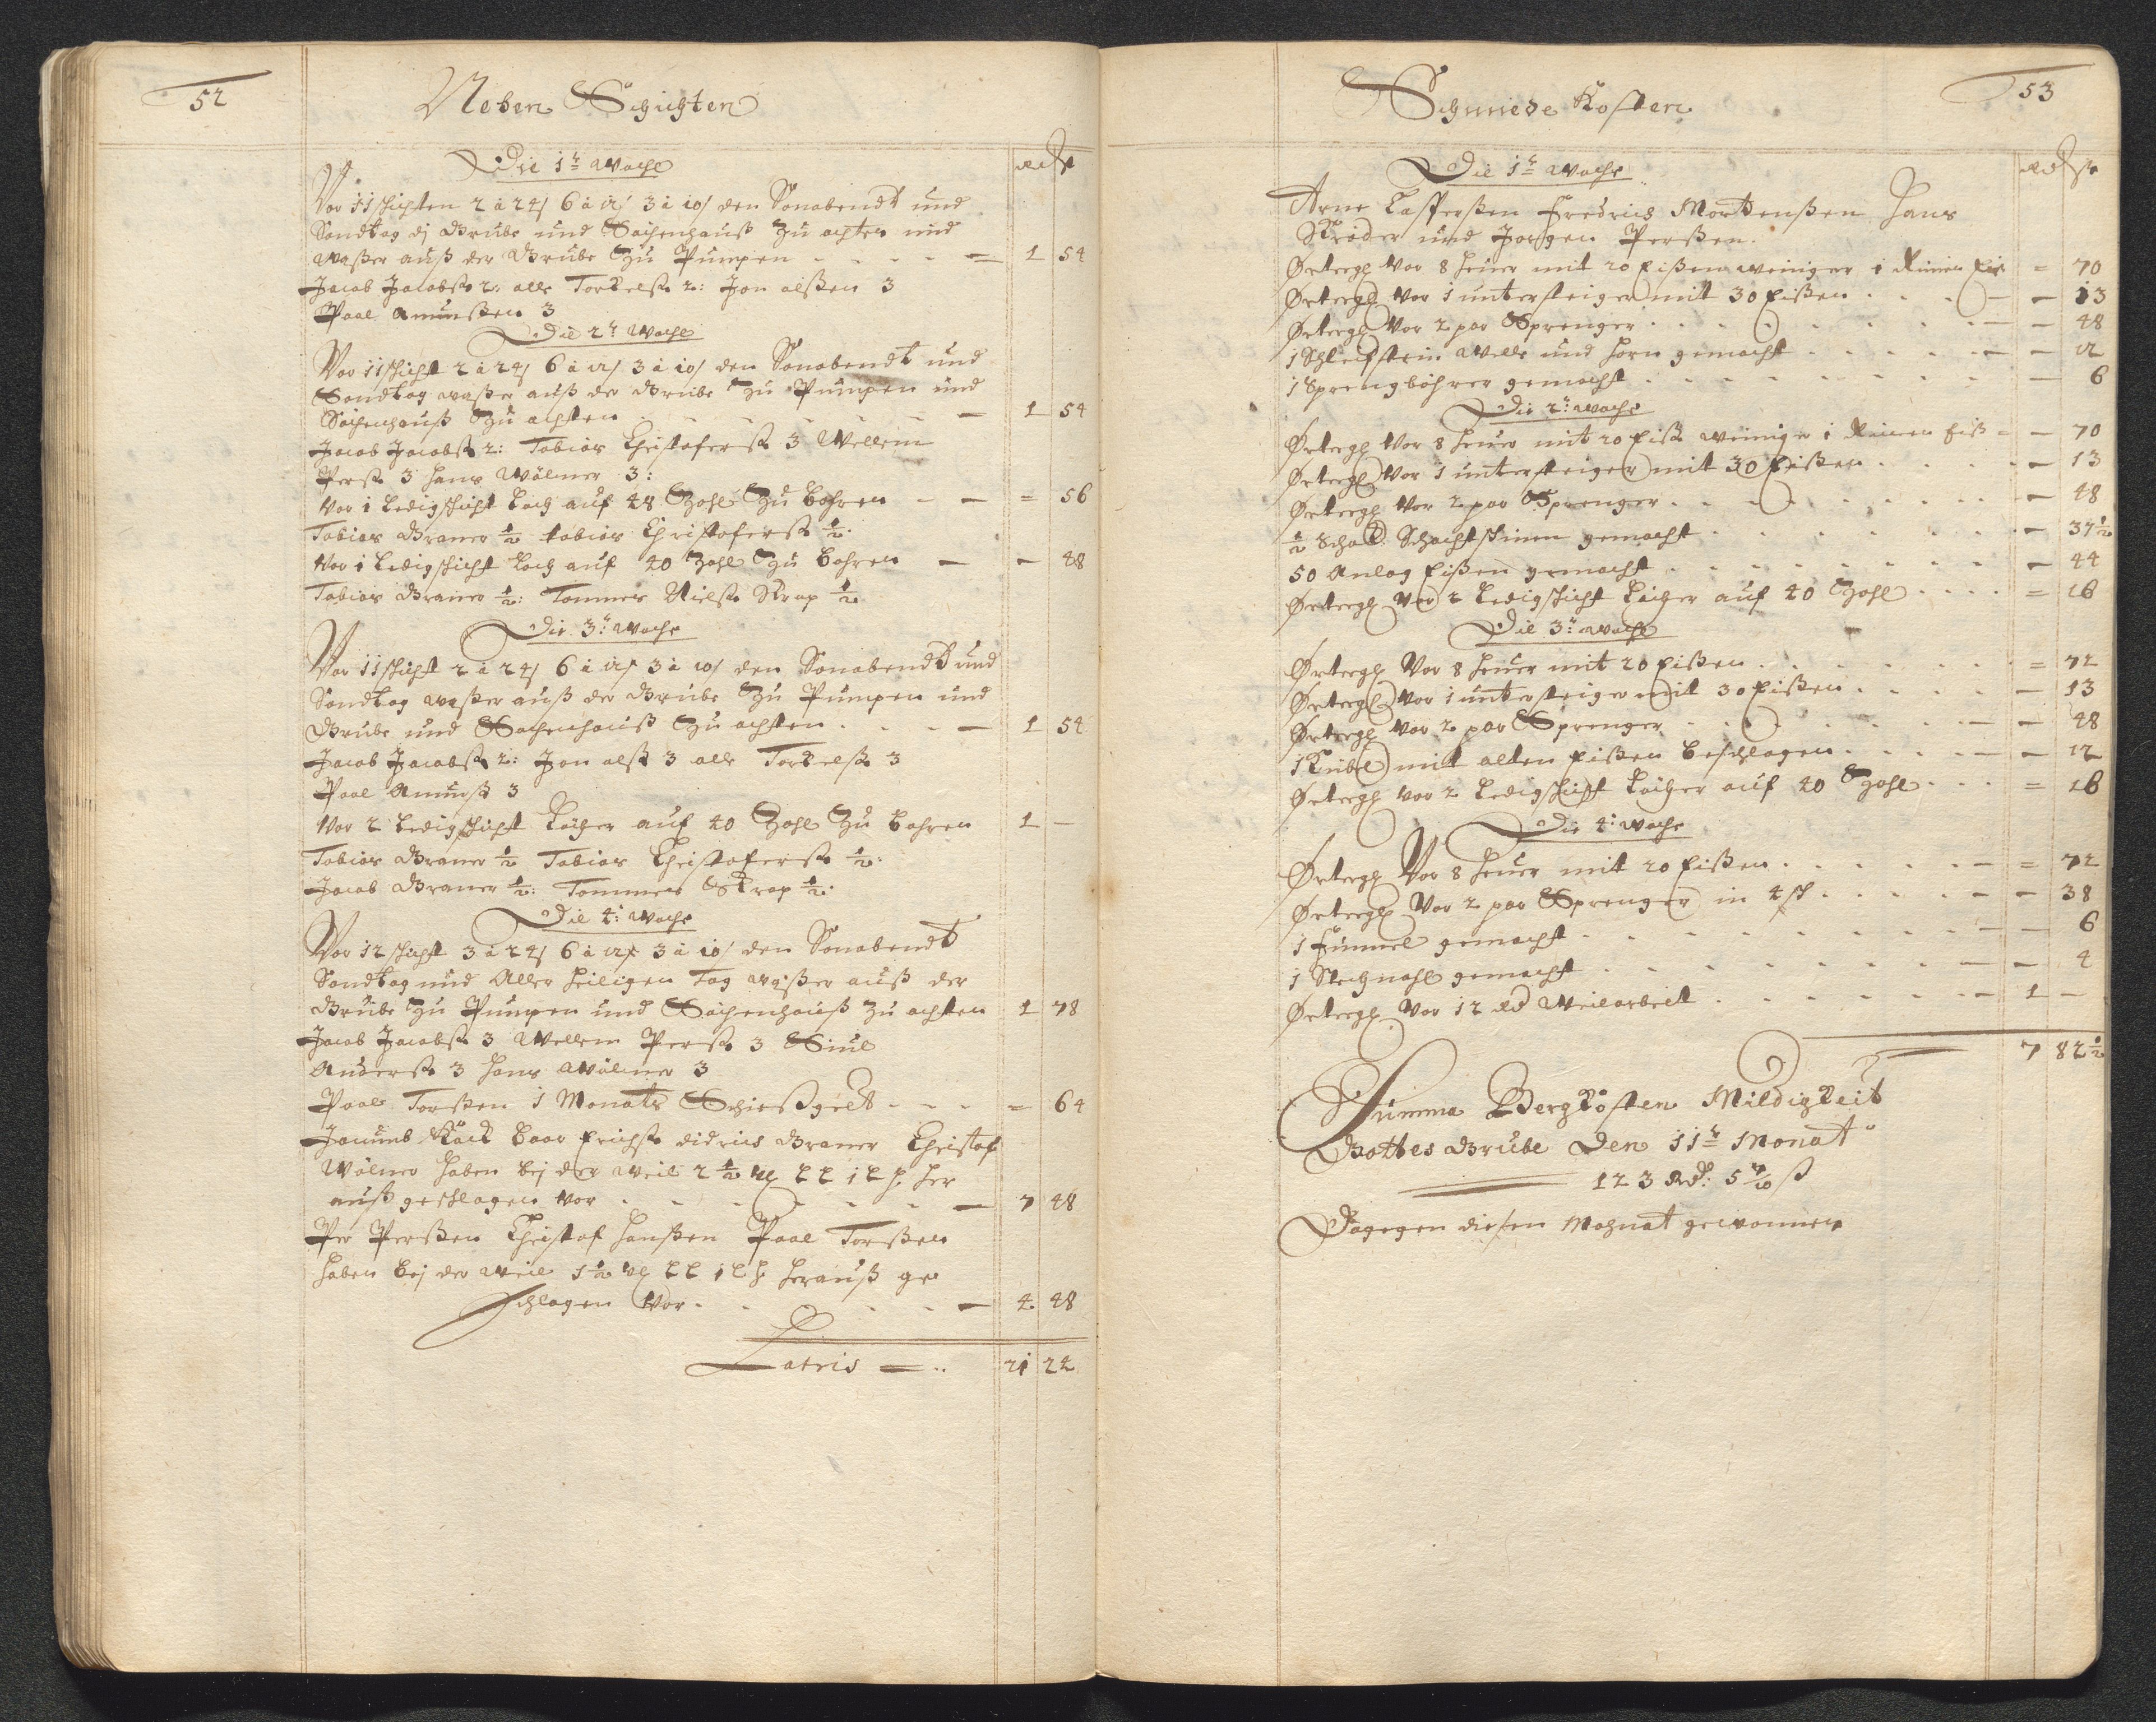 52
Neben Schichten
Die 1te Woche
Rd ß
Vor 11 schichten 2 a 24ß 6 a 12ß 3 a 10ß den Sonabendt und
Sondtag dj Grube und Sachenhauß Zu achten und
waßer auß der Grube Zu Pumpen - - - - = 1 54
Jacob Jacobß. 2: alle Torkelß. 2: Jon olßen 3
Paal Amunßen 3
Die 2te Woche
Vor 11 schicht 2 a 24ß 6 a 12ß 3 a 10ß den Sonabendt und
Sondtag waßer auß der Grube Zu Pumpen und
Sachenhauß Zu achten - - - - - 1 54
Jacob Jacobß. 2: Tobias Christoferß. 3 Wellem
Perß. 3 Hans Wölner 3:
Vor 1 Ledigschicht Loch auf 48 Zohl Zu Bohren - - = 56
Tobias Graner ½ tobias Christoferß. ½.
Vor 1 Ledigschicht Loch auf 40 Zohl Zu Bohren - - 48
Tobias Graner ½: Tommes Nielß. Krap ½
Die 3te Woche
Vor 11 schicht 2 a 24ß 6 a 12ß 3 a 10ß den Sonabendt und
Sondtag waßer auß der Grube Zu Pumpen und
Grube und Sachenhauß Zu achten - - - - 1 54
Jacob Jacobß. 2: Jon olß. 3 alle Torkelß. 3
Paal Amunß. 3
Vor 2 Ledigschicht Löcher auf 40 Zohl Zu Bohren 1 -
Tobias Graner ½ Tobias Christoferß. ½:
Jacob Graner ½: Tommes Krap ½.
Die 4te Woche
Vor 12 schicht 3 a 24ß 6 a 12ß 3 a 10ß den Sonabendt
Sondtag und Aller Heiligen Tag waßer auß der
Grube Zu Pumpen und Sachenhauß Zu achten 1 78
Jacob Jacobß. 3 Wellem Perß. 3 Siul
Anderß. 3 Hans Wölner 3
Paal Torßen 1 Monats Schießgelt - - - = 64
Baar Erichß. Didrics Graner Christof
Wölner Haben bej der Weil 2½ her
auß geschlagen Vor - - - - - 7 48
Per Perßen Christof Hanßen Paal Torßen
Haben bej der Weil 1½ herauß ge
schlagen Vor - - - - 4 48
Latris = .. 21 24
53
Schmiede Kosten
Die 1te Woche
Rd ß
Arne Casperßen Fredrics Mortenßen Hans
Schröder und Jorgen Perßen.
Örtergl Vor 8 Heuer mit 20 Eißen weiniger 1 Riemen Eis = 70
Örtergl Vor 1 untersteiger mit 30 Eißen - - - - 13
Örtergl Vor 2 par Sprenger - - - - - 48
1 Schleifstein Welle und Horn gemacht - - - - 12
1 Sprengböhrer gemacht - - - - - 6
Die 2te Woche
Örtergl Vor 8 Heuer mit 20 Eiß. weiniger 1 Riemen Eiß = - 70
Örtergl Vor 1 untersteiger mit 30 Eißen - - - - 13
Örtergl Vor 2 par Sprenger - - - - - 48
½ Schock Schachtschinen gemacht - - - - - 37½
50 Anlag Eißen gemacht - - - - - 44
Örtergl Vor 2 Ledigschicht Löcher auf 40 Zohl - - - = 16
Die 3te Woche
Örtergl Vor 8 Heuer mit 20 Eißen - - - - = 72
Örtergl Vor 1 untersteiger mit 30 Eißen - - - - 13
Örtergl Vor 2 par Sprenger - - - - - 48
1 Kübel mit alten Eißen Beschlagen - - - - 12
Örtergl Vor 2 Ledigschicht Löcher auf 40 Zohl - - - = 16
Die 4te Woche
Örtergl Vor 8 Heuer mit 20 Eißen - - - - = 72
Örtergl Vor 2 par Sprenger in 4 sch - - - - 38
1 Fümmel gemacht - - - - - 6
1 Stechnahl gemacht - - - - - 4
Örtergl Vor 12 Rd Weilarbeit - - - - 1 -
7 82½
Summa Bergkosten Mildigkeit
Gottes Grube Den 11te Monat
123 Rd: 5 ß
Dagegen diesen Mohnat gewonnen